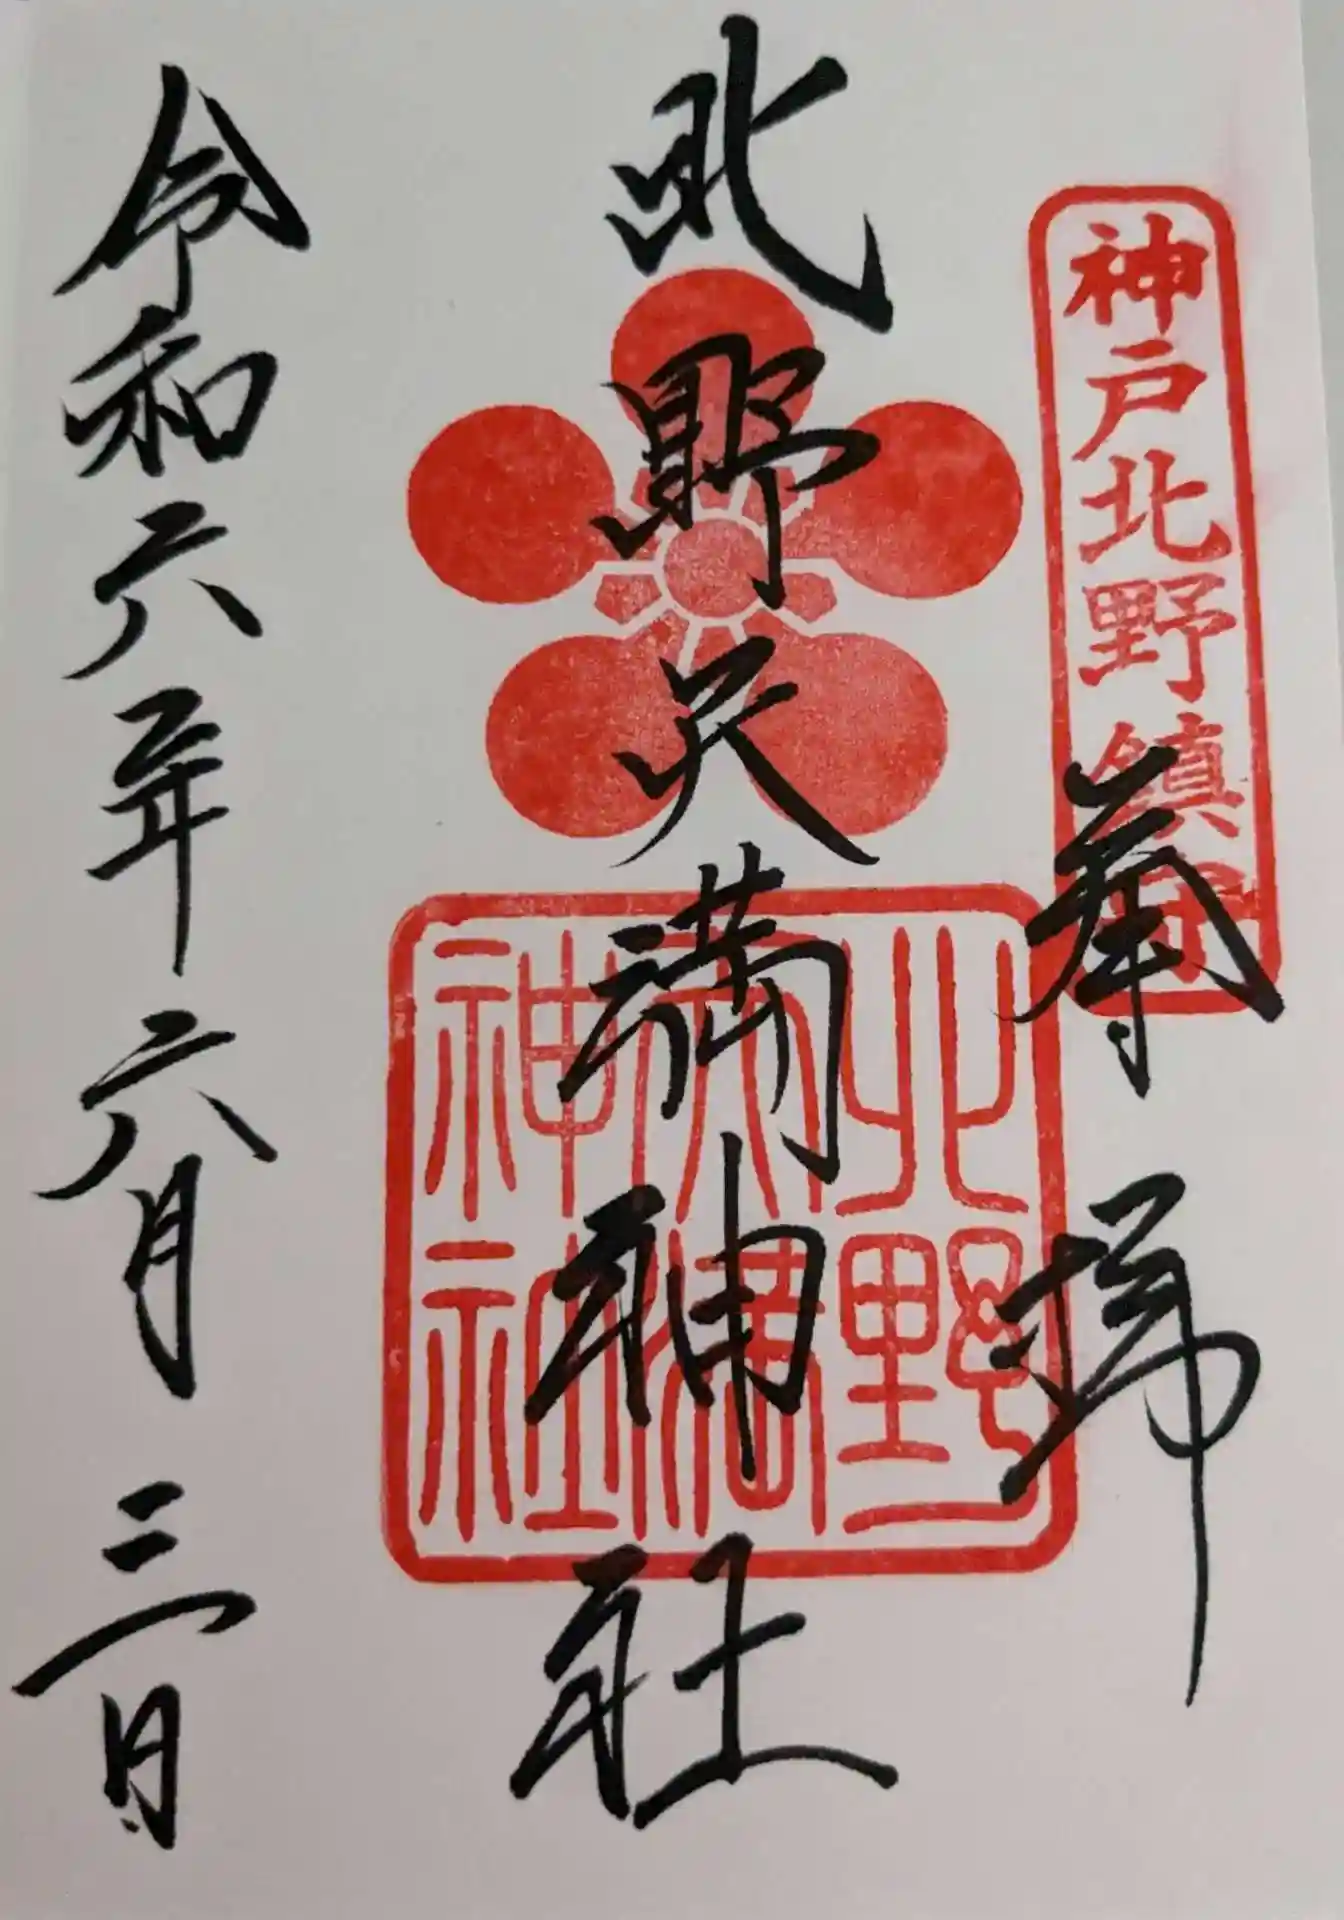 神戸北野鎮守
奉拝
北野天満神社
北野天満神社
令和六年六月三日